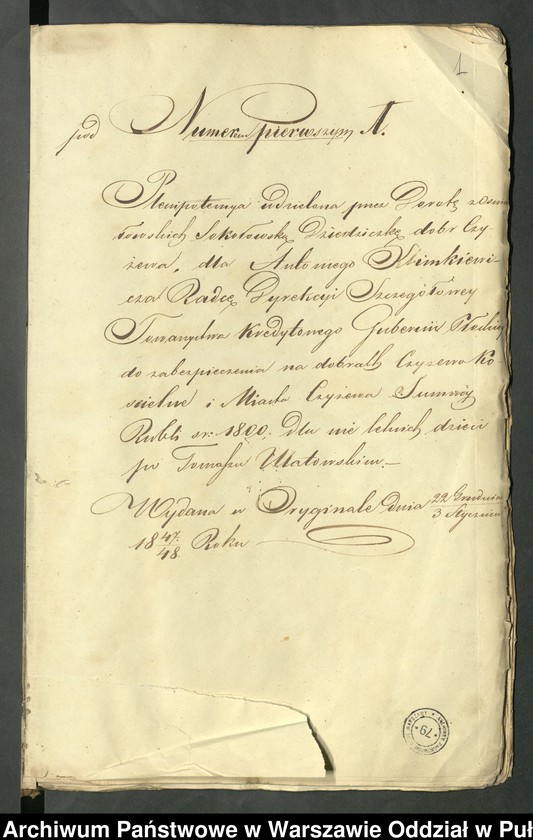 1
pod Numerem pierwszym A.
Plenipotencya udzielona przez Dorotę z
Sokołowską Dziedziczkę dobr Czy-
żewa, dla Antoniego Klimkiewi-
cza Radcę Dyrekcyi Szczegółowey
Towarzystwa Kredytowego Gubernii Płockiey
do zabezpieczenia na dobrach Czyżewo Ko-
scielne i Miasta Czyżewa Summy
Rubli sr. 1800. dla nie letnich dzieci
po Tomaszu Utatowskim.—
Wydana w Oryginale dnia 22 Grudnia / 3 Stycznia
18 47/48 Roku
79
Archiwum Państwowe w Warszawie Oddział w Puł